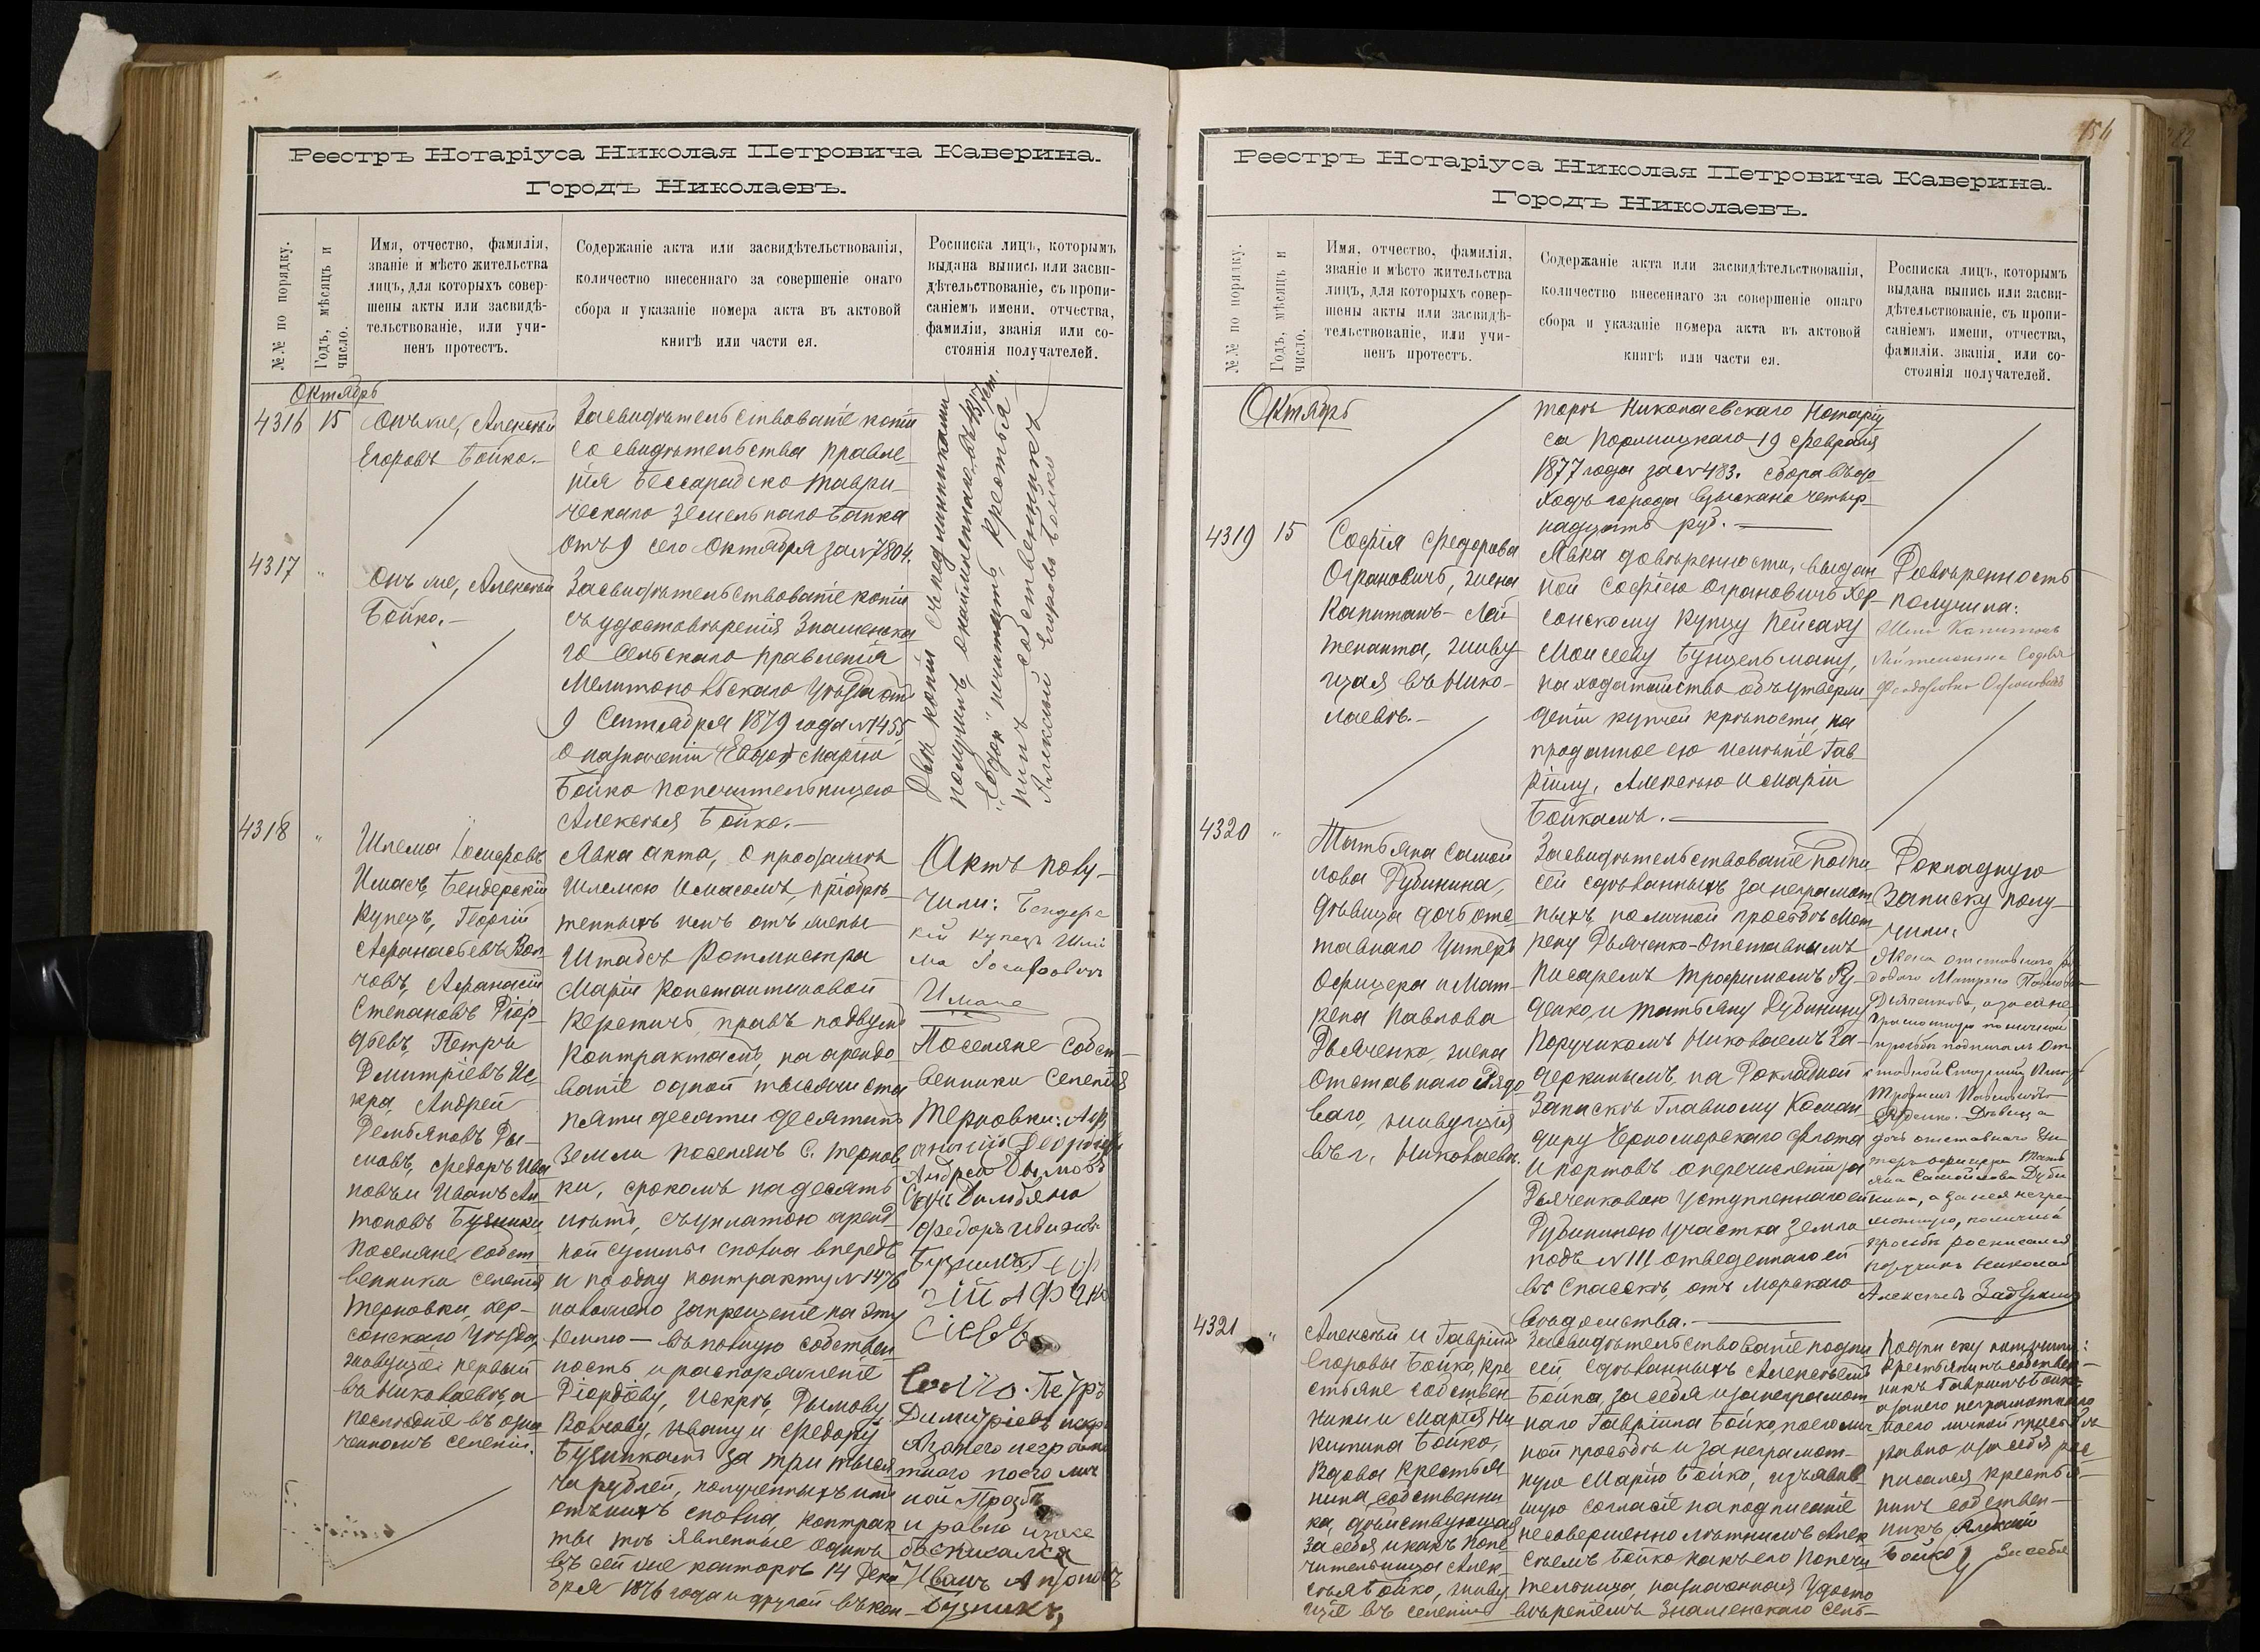 Реестръ Нотаріуса Николая Петровича Каверина.
Городъ Николаевъ.
№№ по порядку.
Годъ, мѣсяцъ и
число.
Имя, отчество, фамилія,
званіе и мѣсто жительства
лицъ, для которыхъ совер-
шены акты или засвидѣ-
тельствованіе, или учи-
ненъ протестъ.
Содержаніе акта или засвидѣтельствованія,
количество внесеннаго за совершеніе онаго
сбора и указаніе номера акта въ актовой
книгѣ или части ея.
Росписка лицъ, которымъ
выдана выпись или засви-
дѣтельствованіе, съ пропи-
саніемъ имени, отчества,
фамиліи, званія или со-
стоянія получателей.
Октябрь
4316 15
Онъ же, Алексѣй
Егоровъ Бойко.—
Засвидѣтельствованіе копіи
со свидѣтельства Правле-
нія Бессарабско Таври-
ческаго Земельнаго Банка
отъ 9 сего Октября за № 7804.
4317 "
Онъ же, Алексѣй
Бойко.—
Засвидѣтельствованіе копіи
съ удостовѣренія Знаменска
го Сельскаго Правленія
Мелитопольскаго Уѣзда отъ
9 Сентября 1879 года № 1455
о назначеніи Вдовы Маріи
Бойко попечительницею
Алексѣя Бойко.—
Двѣ копіи съ подлинниками
получилъ, крестья
нинъ собственникъ
Алексѣй Егоровъ Бойко
4318 "
Шлема Іосифовъ
Имасъ, Бендерскій
Купецъ, Георгій
Афанасьевъ Вол-
човъ, Афанасій
Степановъ Діор-
дѣевъ, Петръ
Дмитріевъ Ис-
кра, Андрей
Демьяновъ Ды-
мовъ, Федоръ Ива
новъ и Иванъ Ан-
тоновъ Бузники
Поселяне собст
венники селенія
Терновки, Хер-
сонскаго Уѣзда,
живущіе: первый
въ Николаевѣ, а
послѣдніе въ озна
ченномъ селеніи.
Явка акта, о продажѣ
Шлемою Имасомъ, пріобрѣ
тенныхъ имъ отъ жены
Штабсъ Ротмистра
Маріи Константиновой
Кересличъ, правъ по двумъ
контрактамъ, на арендо
ваніе одной тысячи ста
пяти десяти десятинъ
земли поселянъ С. Тернов
ки, срокомъ на десять
лѣтъ, съ уплатою аренд
ной суммы сполна впередъ
и по одну контракту № 1476
наложено запрещеніе на эту
землю — въ полную собствен
ность и распоряженіе
Діордіеву, Искрѣ, Дымову
Волчову, Ивану и Федору
Бузникамъ за три тыся
чи рублей, полученныхъ имъ
отъ нихъ сполна, контрак
ты тѣ явленные одинъ
въ сей же конторѣ 14 Дека
бря 1876 года и другой въ кон-
Актъ полу-
чили: Бендерс
кій купецъ Шле
ма Іосифовичъ
Имасъ
Поселяне Собст-
венники селенія
Терновки: Аф
анасій Деордіевъ
Андрей Дымовъ
Федоръ Ивановъ
Петръ
Димитріевъ Искра
А за него негра
тнаго по его лич
ной прозбѣ
и равно и за себя
росписался
Иванъ Антоновъ
Бузникъ,
154
Реестръ Нотаріуса Николая Петровича Каверина.
Городъ Николаевъ.
№№ по порядку.
Годъ, мѣсяцъ и
число.
Имя, отчество, фамилія,
званіе и мѣсто жительства
лицъ, для которыхъ совер-
шены акты или засвидѣ-
тельствованіе, или учи-
ненъ протестъ.
Содержаніе акта или засвидѣтельствованія,
количество внесеннаго за совершеніе онаго
сбора и указаніе номера акта въ актовой
книгѣ или части ея.
Росписка лицъ, которымъ
выдана выпись или засви-
дѣтельствованіе, съ пропи-
саніемъ имени, отчества,
фамиліи, званія или со-
стоянія получателей.
Октябрь
торѣ Николаевскаго Нотаріу
са 19 Февраля
1877 года за № 483. Сбора въ до
ходъ города взыскано четыр
надцать руб.—
4319 15
Софія Федорова
Ограновичъ, жена
Капитанъ-Лей
тенанта, живу
щая въ Нико-
лаевѣ.—
Явка довѣренности, выдан
ной Софіею Ограновичъ Хер-
сонскому Купцу Пейсаху
Моисееву Бунцельману,
на ходатайство объ утверж
деніи купчей крѣпости, на
проданное ею имѣніе Гав
ріилу, Алексѣю и Маріи
Бойкамъ.—
Довѣренность
получила:
Жена Капитанъ
Лейтенанта Софья
Феодоровна Ограновичъ
4320 "
Татьяна Самой
лова Дубинина,
дѣвица дочь отс
тавнаго Унтеръ
Офицера и Мат-
рена Павлова
Дьяченко, жена
отставнаго Рядо
ваго, живущія
въ г. Николаевѣ.
Засвидѣтельствованіе подпи
сей сдѣланныхъ за неграмот
ныхъ, по личной просьбѣ Мат
рену Дьяченко-отставнымъ
писаремъ Трофимомъ Ру-
денко, и Татьяну Дубинину
Поручикомъ Николаемъ За-
деркинымъ, на Докладной
Запискѣ Главному Коман
диру Черноморскаго Флота
и портовъ о перечисленіи за
Дьяченковою уступленнаго ей
Дубининою участка земли
подъ № 111 отведеннаго ей
въ Спасскѣ, отъ Морскаго
вѣдомства.—
Докладную
Записку полу-
чили:
Жена отставнаго ря
доваго Матрена Павлова
Дьяченкова, а за ея не
грамотную по личной
просьбѣ подписалъ От
Трофимъ
Руденко. Дѣвица
дочь отставнаго Ун
теръ офицера Тать
яна Самойлова Дуби
нина, а за нея негра
мотную, по личной
просьбѣ росписался
поручикъ Николай
Алексѣевъ Задеркинъ
4321 "
Алексѣй и Гавріилъ
Егоровы Бойко, кре
стьяне собствен-
ники и Марія Ни
китина Бойко,
вдова крестья
нина, собственни
ка, дѣйствующая
за себя и какъ попе
чительница Алек-
сѣя Бойко, живу
щіе въ селеніи
Засвидѣтельствованіе подпи
сей, сдѣланныхъ Алексѣемъ
Бойко за себя и за неграмот
наго Гавріила Бойко, по его лич
ной просьбѣ и за неграмот-
ную Марію Бойко, изъявив
шую согласіе на подписаніе
несовершеннолѣтнимъ Алек
сѣемъ Бойко какъ его попечи
тельница, назначенная удосто
вѣреніемъ Знаменскаго Сель-
Подписку получили:
Крестьянинъ собствен-
никъ Гавріилъ Бойко,
а за него неграмотнаго
по его личной просьбѣ
равно и за себя рос
писался крестья-
нинъ собствен-
никъ Алексѣй
Бойко за себя